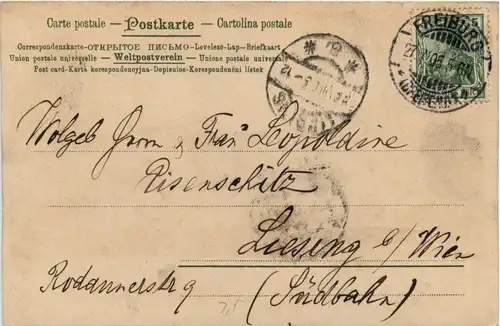 Carte postale — Postkarte — Cartolina postale
Correspondenzkarte - ОТКРЫТОЕ ПИСЬМО - Levelező-Lap - Briefkaart
Union postale universelle — Weltpostverein — Unione postale universale
Post card - Karta korespondencyjna - Dopisnice - Korespondenční lístek
FREIBURG
Wolgeb Frau Leopoldine
Risenschitz
Liesing b/ Wien
Rodaunerstr 9 (Südbahn)